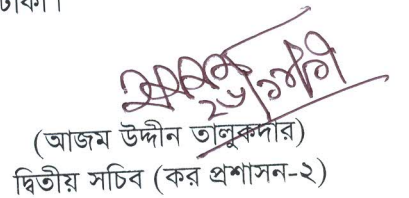 ঢাকা।
(আজম উদ্দীন তালুকদার)
দ্বিতীয় সচিব (কর প্রশাসন-২)